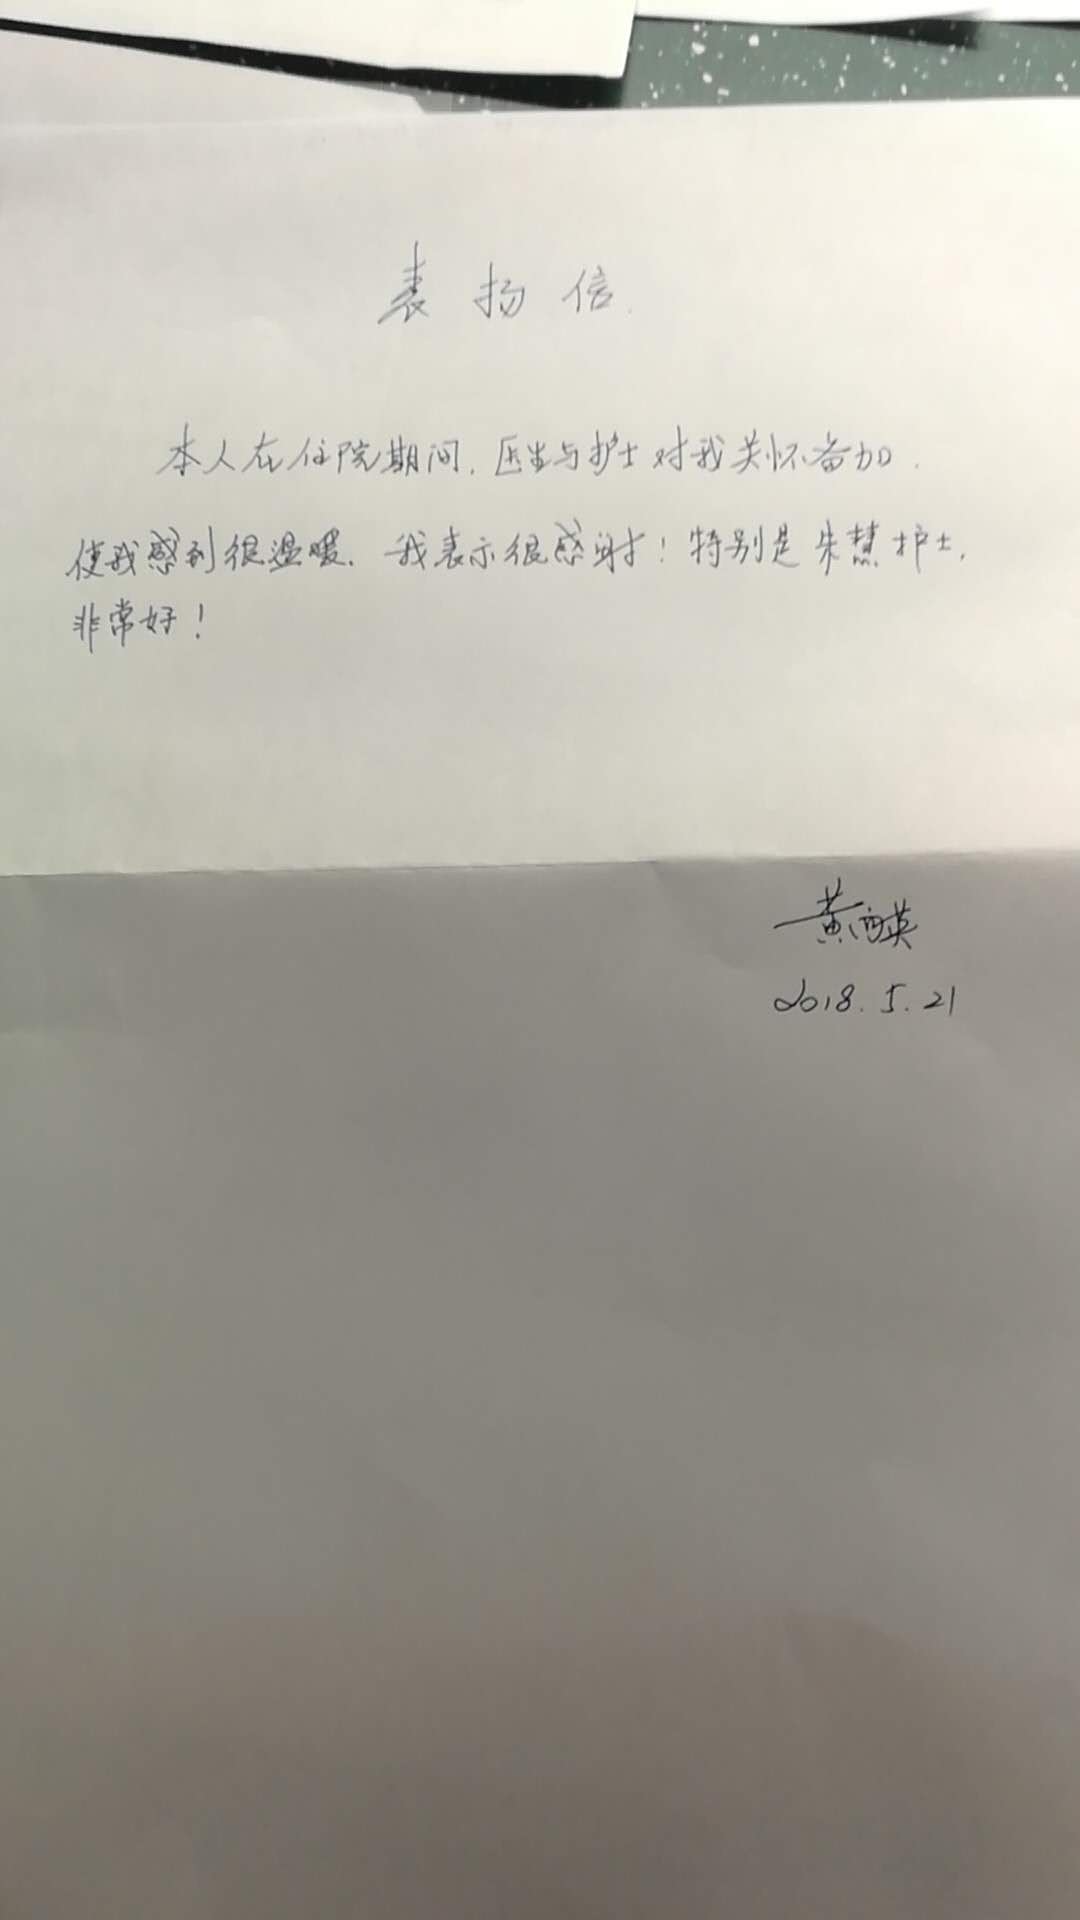 表扬信.
本人在住院期间.医生与护士对我关怀备加.
使我感到很温暖.我表示很感谢！特别是朱慧护士,
非常好！
黄英
2018.5.21